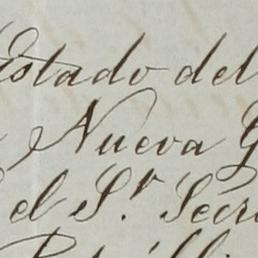 Estado del
Nueva G
el S.r Secr